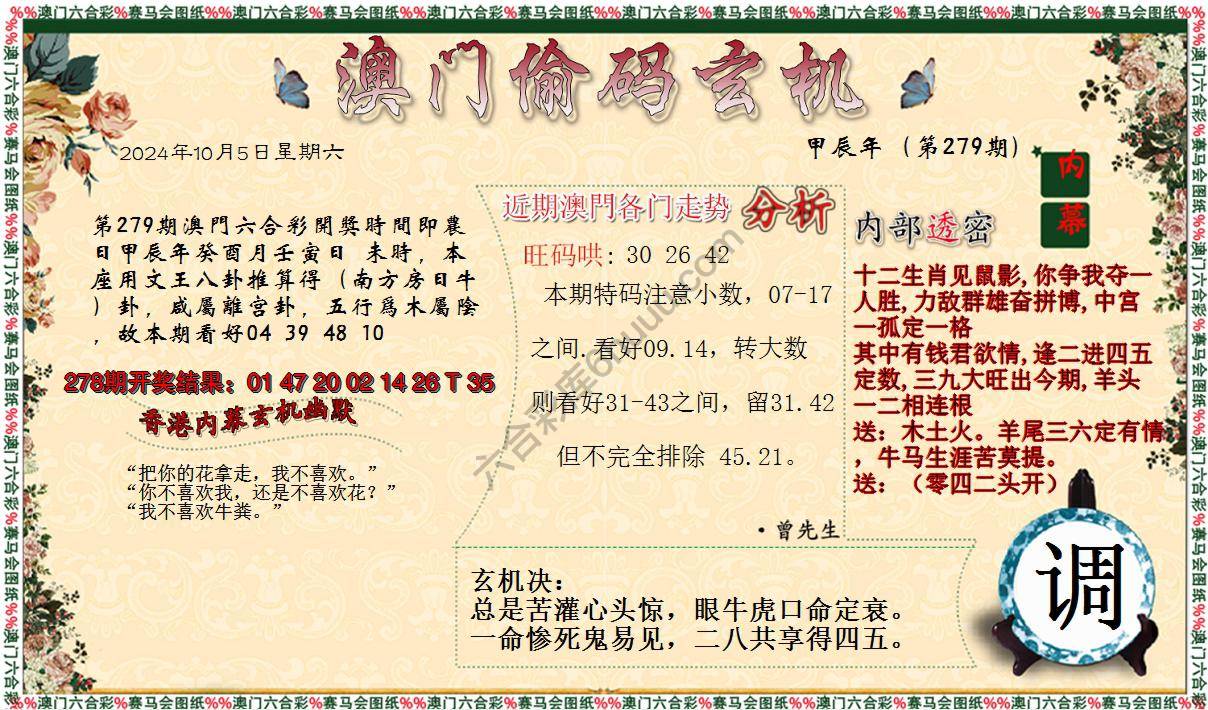 %%澳门六合彩%赛马会图纸%%澳门六合彩%赛马会图纸%%澳门六合彩%赛马会图纸%%澳门六合彩%赛马会图纸%%澳门六合彩%赛马会图纸%%澳门六合彩%赛马会图纸%%
澳门偷码玄机
2024年10月5日星期六
甲辰年（第279期）
内幕
第279期澳門六合彩開獎時間即農
日甲辰年癸酉月壬寅日 未時，本
座用文王八卦推算得（南方房日牛
）卦，咸屬離宫卦，五行爲木屬陰
，故本期看好04 39 48 10
278期开奖结果：01 47 20 02 14 26 T 35
香港内幕玄机幽默
“把你的花拿走，我不喜欢。”
“你不喜欢我，还是不喜欢花？”
“我不喜欢牛粪。”
近期澳門各门走势 分析
旺码哄: 30 26 42
本期特码注意小数，07-17
之间.看好09.14，转大数
则看好31-43之间，留31.42
但不完全排除 45.21。
·曾先生
内部透密
十二生肖见鼠影,你争我夺一
人胜,力敌群雄奋拼博,中宫
一孤定一格
其中有钱君欲情,逢二进四五
定数,三九大旺出今期,羊头
一二相连根
送：木土火。羊尾三六定有情
，牛马生涯苦莫提。
送：（零四二头开）
玄机决：
总是苦灌心头惊，眼牛虎口命定衰。
一命惨死鬼易见，二八共享得四五。
调
%%澳门六合彩%赛马会图纸%%澳门六合彩%赛马会图纸%%澳门六合彩%赛马会图纸%%澳门六合彩%赛马会图纸%%澳门六合彩%赛马会图纸%%澳门六合彩%赛马会图纸%%